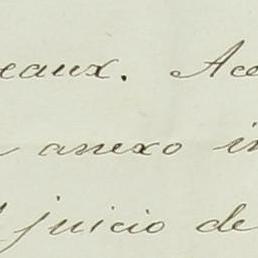 eaux. Ace
anexo in
juicio de